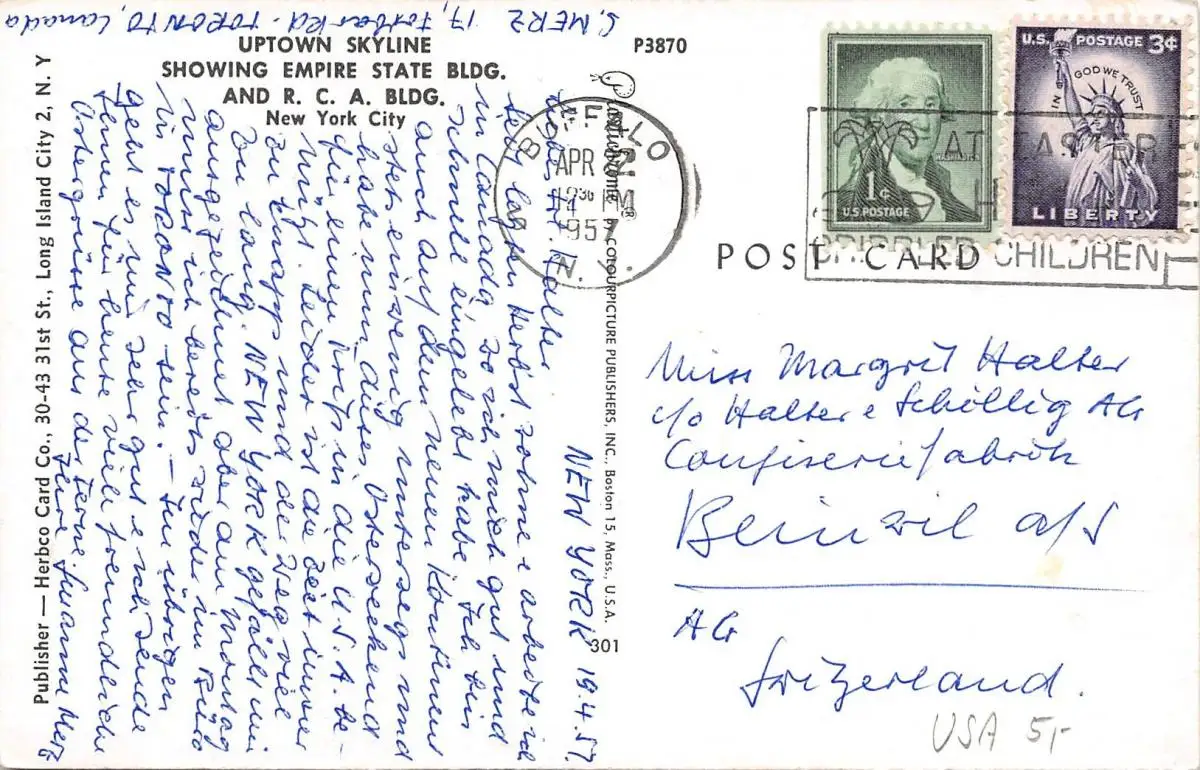 S. MERZ
17, Rd. TORONTO, Canada
UPTOWN SKYLINE
SHOWING EMPIRE STATE BLDG.
AND R. C. A. BLDG.
New York City
P3870
Publisher — Herbco Card Co., 30-43 31st St., Long Island City 2, N. Y
NEW YORK 19.4.57.
Halter
Seit letzten Herbst wohne & arbeite ich
in Canada, wo ich mich gut und
schnell eingelebt habe. Ich bin
auch auf dem neuen Kontinent
stets ein wenig unterwegs und
habe nun dieses Osterweekend
für einen Trip in die U.S.A. be-
nützt. Leider ist die Zeit immer
zu knapp und der Weg viel
zu lang. NEW YORK gefällt mir
ausgezeichnet aber am Montag
muss ich bereits wieder im Büro
in TORONTO sein. – Im übrigen
geht es mir sehr gut & ich sende
Ihnen für heute viele freundliche
Ostergrüsse aus der Ferne
Ihre Susanne Merz
Plastichrome ® BY COLOURPICTURE PUBLISHERS, INC., Boston 15, Mass., U.S.A.
301
BUFFALO
APR
PM
1957
N. Y.
WASHINGTON
1¢
U.S. POSTAGE
U.S. POSTAGE 3¢
IN GOD WE TRUST
LIBERTY
EASTER
CRIPPLED CHILDREN
POST CARD
Miss Margrit Halter
c/o Halter & Schillig AG
Confiseriefabrik
Beinwil a/S
AG
Switzerland.
USA 5,-